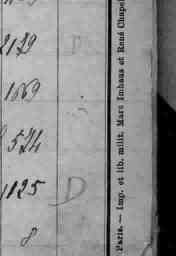 2129
1669
574
1125 D
8
Paris. — Imp. et lib. milit. Marc Imhaus et René Chapel